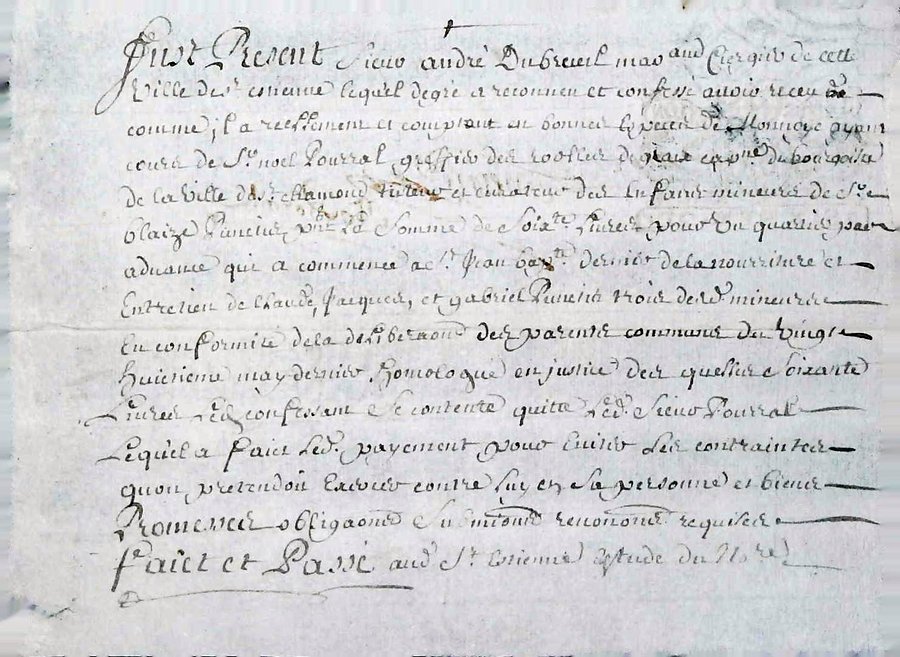 Fust Present Sieur andré Dubreuil mar and Ciergier de cett
Ville de St estienne lequel degré a reconneu et confessé avoir receu
comme il a reellement et comptant en bonnes Especes de Monnoye ayant
cours de Sr noel Pourrat, greffier des rooller de la bourgoisie
de la ville de St chamond tuteur et curateur des Enfans mineurs de Sr
blaize Punctis, la Somme de Soixte Livres pour un quartier par
advance qui a commencé a St Jean bapte dernier de la nourriture et
Entretien de Claude, Jacques, et gabriel Punctis trois desd mineurs
En conformité de la deliberaond des parents communs du Vingt
huictieme may dernier homologué en justice des quelles Soixante
Livres Led confessant Se contente quitte Led. Sieur Pourrat
Lequel a faict Led. payement pour Eviter Les contraintes
quon pretendoit Exercer contre Luy en Sa personne et biens
Promesses obligaons Submions renonons requises
faict et Passé aud St Estienne Estude du Nore